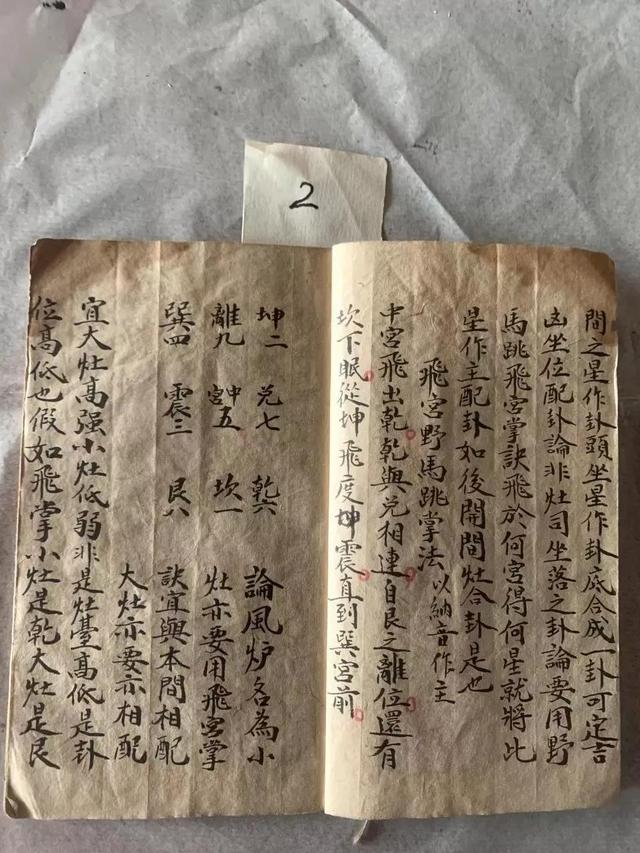 2
間之星作卦頭坐星作卦底合成一卦可定吉
凶坐位配卦論非灶司坐落之卦論要用野
馬跳飛宮掌訣飛於何宮得何星就將此
星作主配卦如後開間灶合卦是也
飛宮野馬跳掌法以納音作主
中宮飛出乾乾與兑相連自艮之離位還有
坎下眠從坤飛度坤震直到巽宮前
坤二 兑七 乾六 論風炉名為小
離九 中宮五 坎一 灶亦要用飛宮掌
巽四 震三 艮八 訣宜與本間相配
大灶亦要亦相配
宜大灶高强小灶低弱非是灶臺高低是卦
位高低也假如飛掌小灶是乾大灶是艮